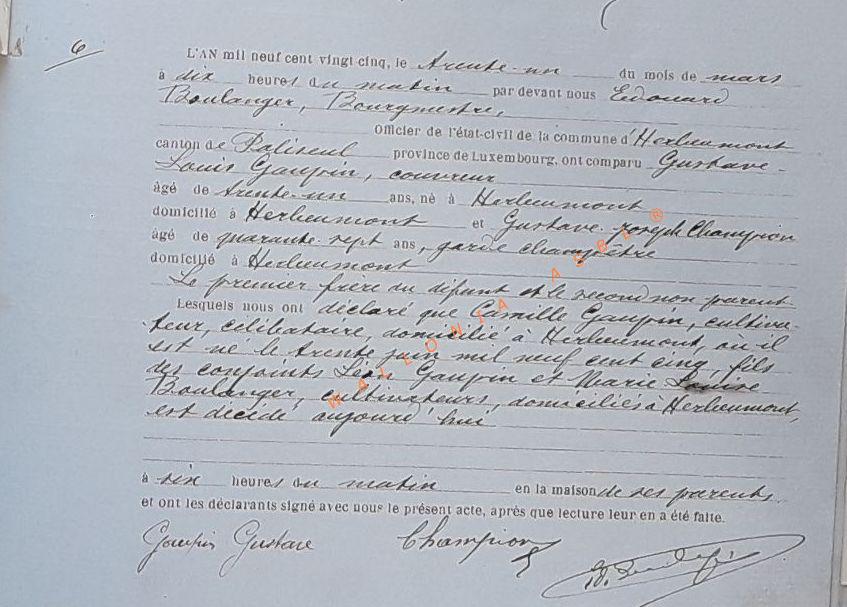 6
L'AN mil neuf cent vingt cinq, le trente-un du mois de mars
à dix heures du matin par devant nous Edouard
Boulanger, Bourgmestre,
Officier de l'état-civil de la commune d'Herbeumont
canton de Paliseul province de Luxembourg, ont comparu Gustave-
Louis Gaupin, couvreur
âgé de trente-un ans, né à Herbeumont
domicilié à Herbeumont et Gustave-Joseph Champion
âgé de quarante-sept ans, garde champêtre
domicilié à Herbeumont
Le premier frère du défunt et le second non parent
Lesquels nous ont déclaré que Camille Gaupin, cultiva-
teur, célibataire, domicilié à Herbeumont, où il
est né le trente juin mil neuf cent cinq, fils
des conjoints Léon Gaupin et Marie Louise
Boulanger, cultivateurs, domiciliés à Herbeumont,
est décédé aujourd'hui
à six heures du matin en la maison de ses parents
et ont les déclarants signé avec nous le présent acte, après que lecture leur en a été faite.
Gaupin Gustave Champion
WALLONIA ASBL ®